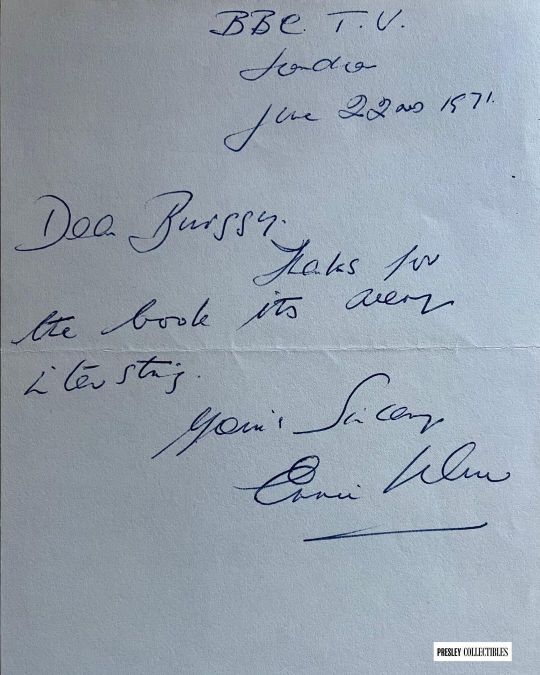 BBC. T.V.
London
June 22nd 1971.
Dear Burggy.
Thanks for
the book its very
intersting.
Yours Sincerely
Ernie
PRESLEY COLLECTIBLES